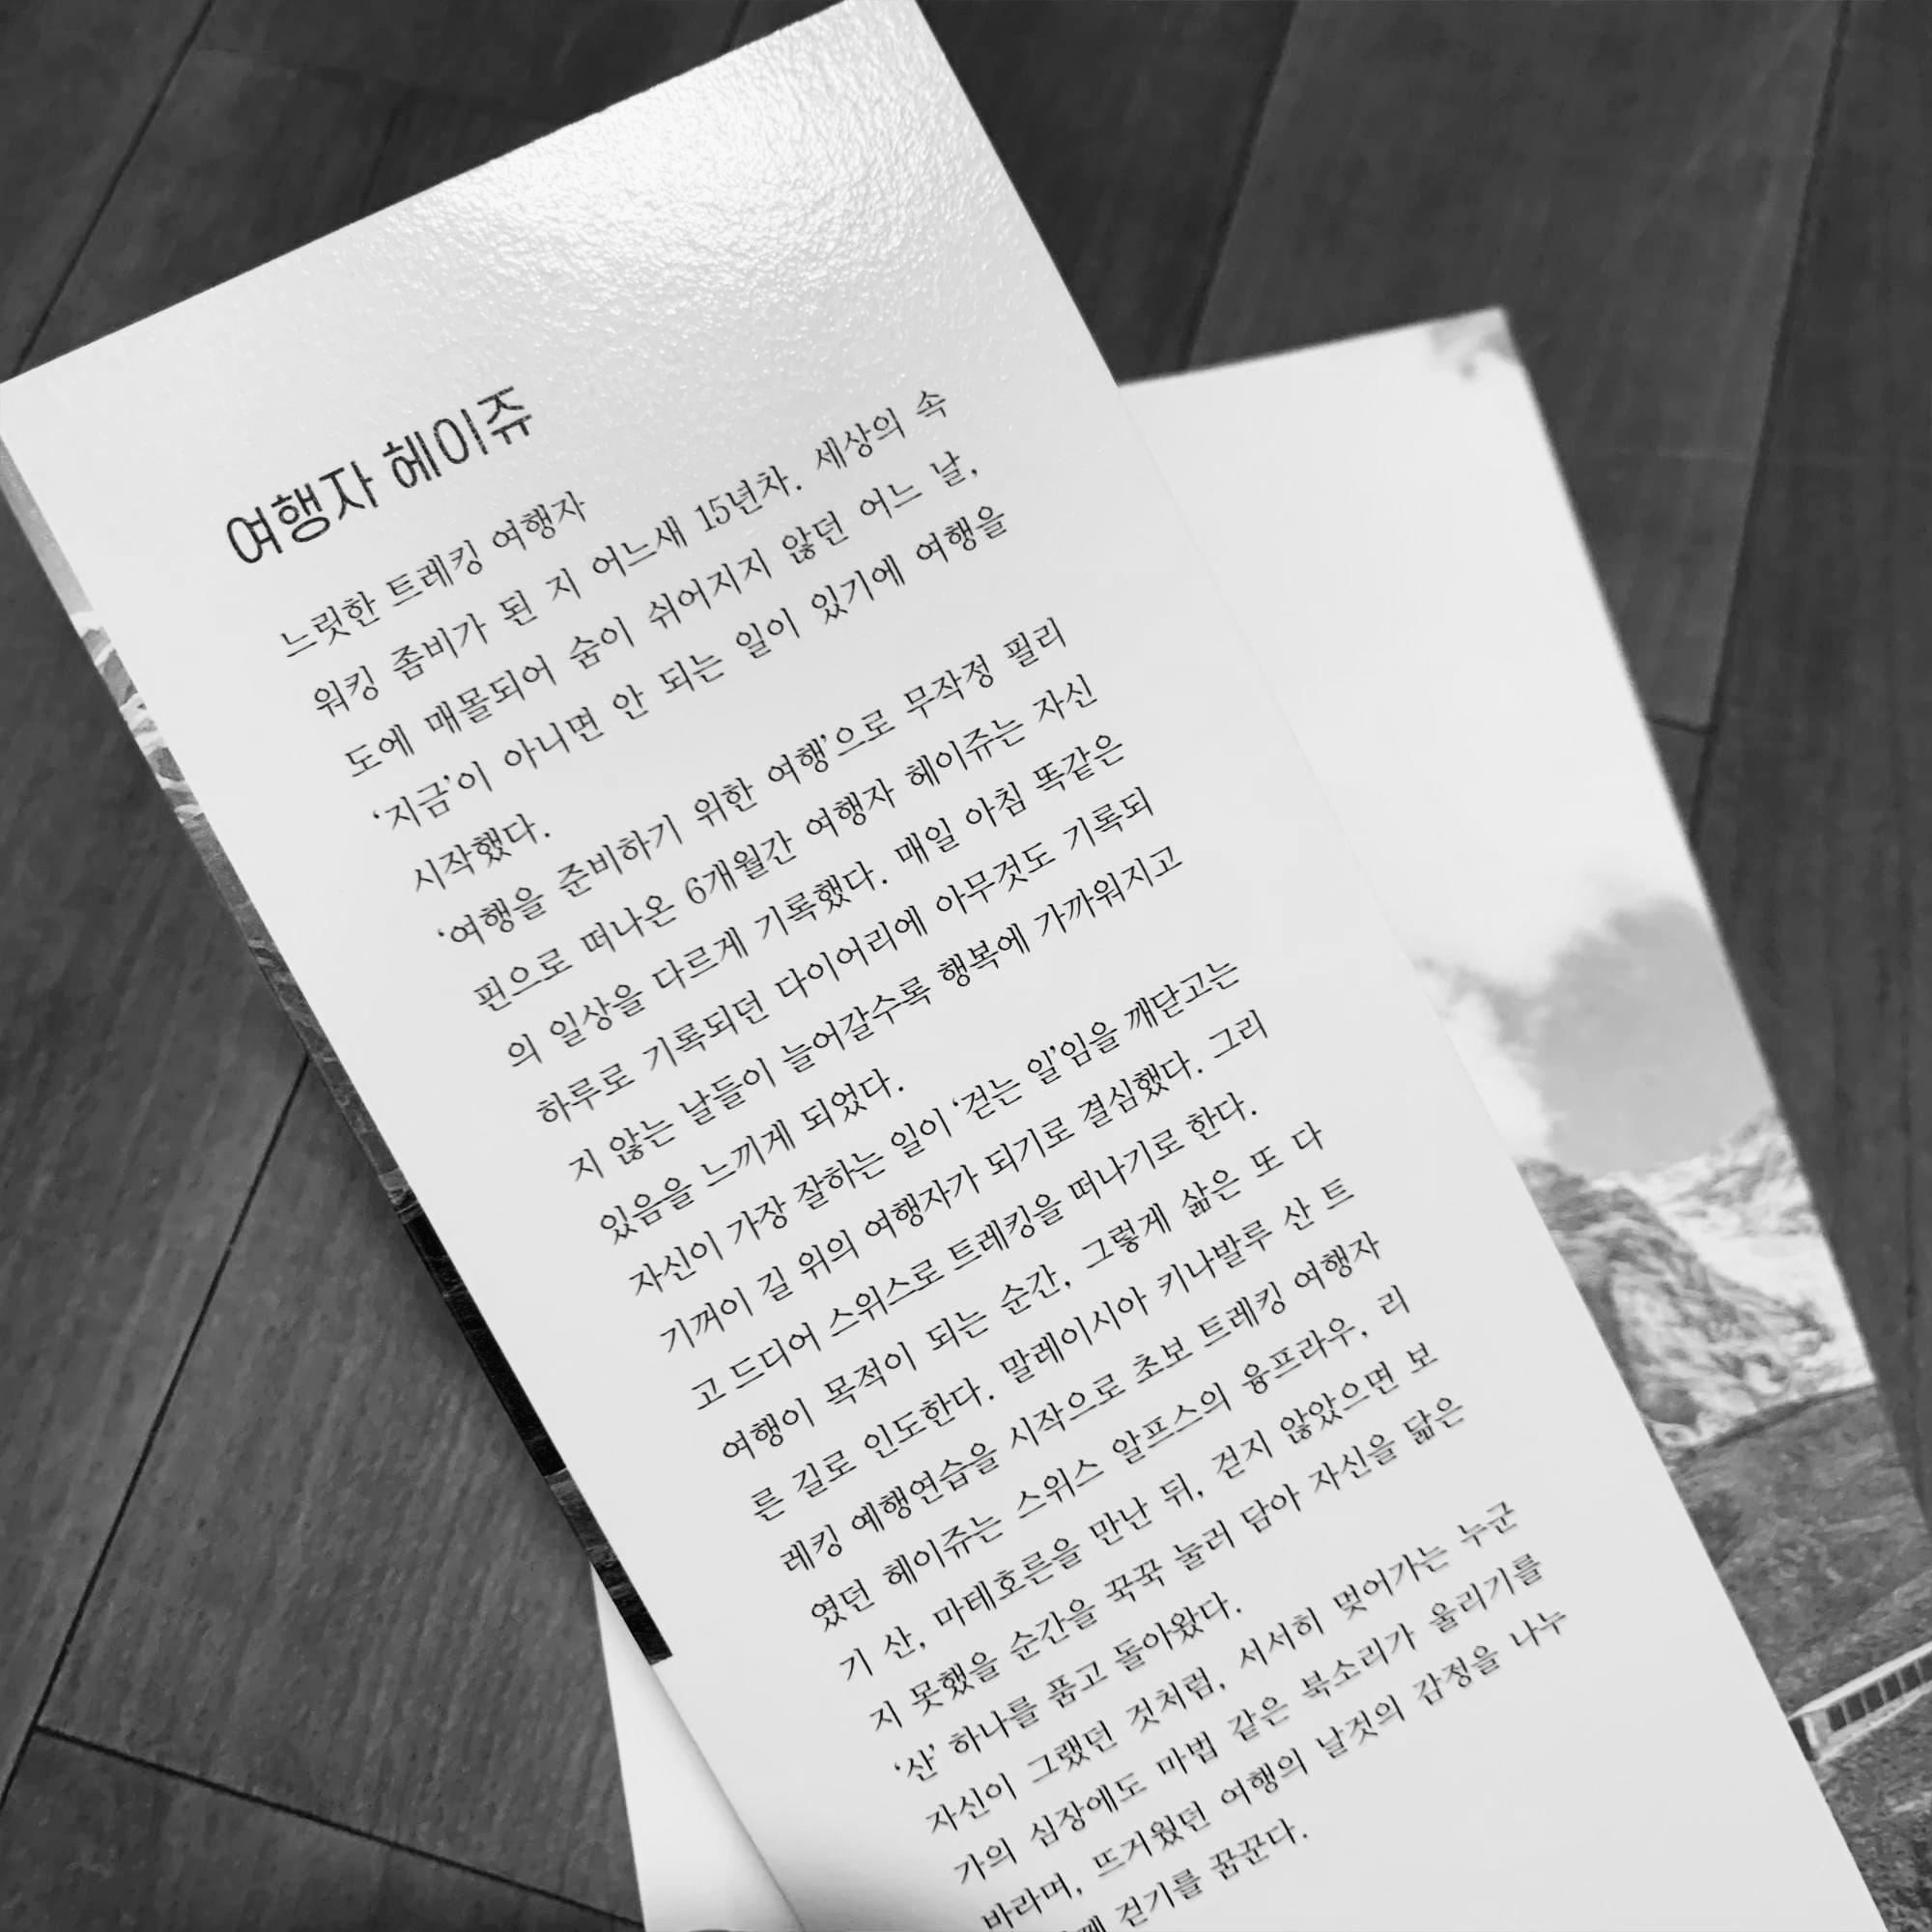 여행자 헤이쥬
느릿한 트레킹 여행자
워킹 좀비가 된 지 어느새 15년차. 세상의 속
도에 매몰되어 숨이 쉬어지지 않던 어느 날,
‘지금’이 아니면 안 되는 일이 있기에 여행을
시작했다.
‘여행을 준비하기 위한 여행’으로 무작정 필리
핀으로 떠나온 6개월간 여행자 헤이쥬는 자신
의 일상을 다르게 기록했다. 매일 아침 똑같은
하루로 기록되던 다이어리에 아무것도 기록되
지 않는 날들이 늘어갈수록 행복에 가까워지고
있음을 느끼게 되었다.
자신이 가장 잘하는 일이 ‘걷는 일’임을 깨닫고는
기꺼이 길 위의 여행자가 되기로 결심했다. 그리
고 드디어 스위스로 트레킹을 떠나기로 한다.
여행이 목적이 되는 순간, 그렇게 삶은 또 다
른 길로 인도한다. 말레이시아 키나발루 산 트
레킹 예행연습을 시작으로 초보 트레킹 여행자
였던 헤이쥬는 스위스 알프스의 융프라우, 리
기 산, 마테호른을 만난 뒤, 걷지 않았으면 보
지 못했을 순간을 꾹꾹 눌러 담아 자신을 닮은
‘산’ 하나를 품고 돌아왔다.
자신이 그랬던 것처럼, 서서히 멎어가는 누군
가의 심장에도 마법 같은 북소리가 울리기를
바라며, 뜨거웠던 여행의 날것의 감정을 나누
걷기를 꿈꾼다.